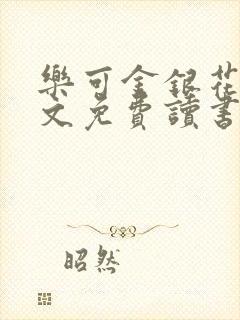 樂可金銀花
文免費讀書
昭然